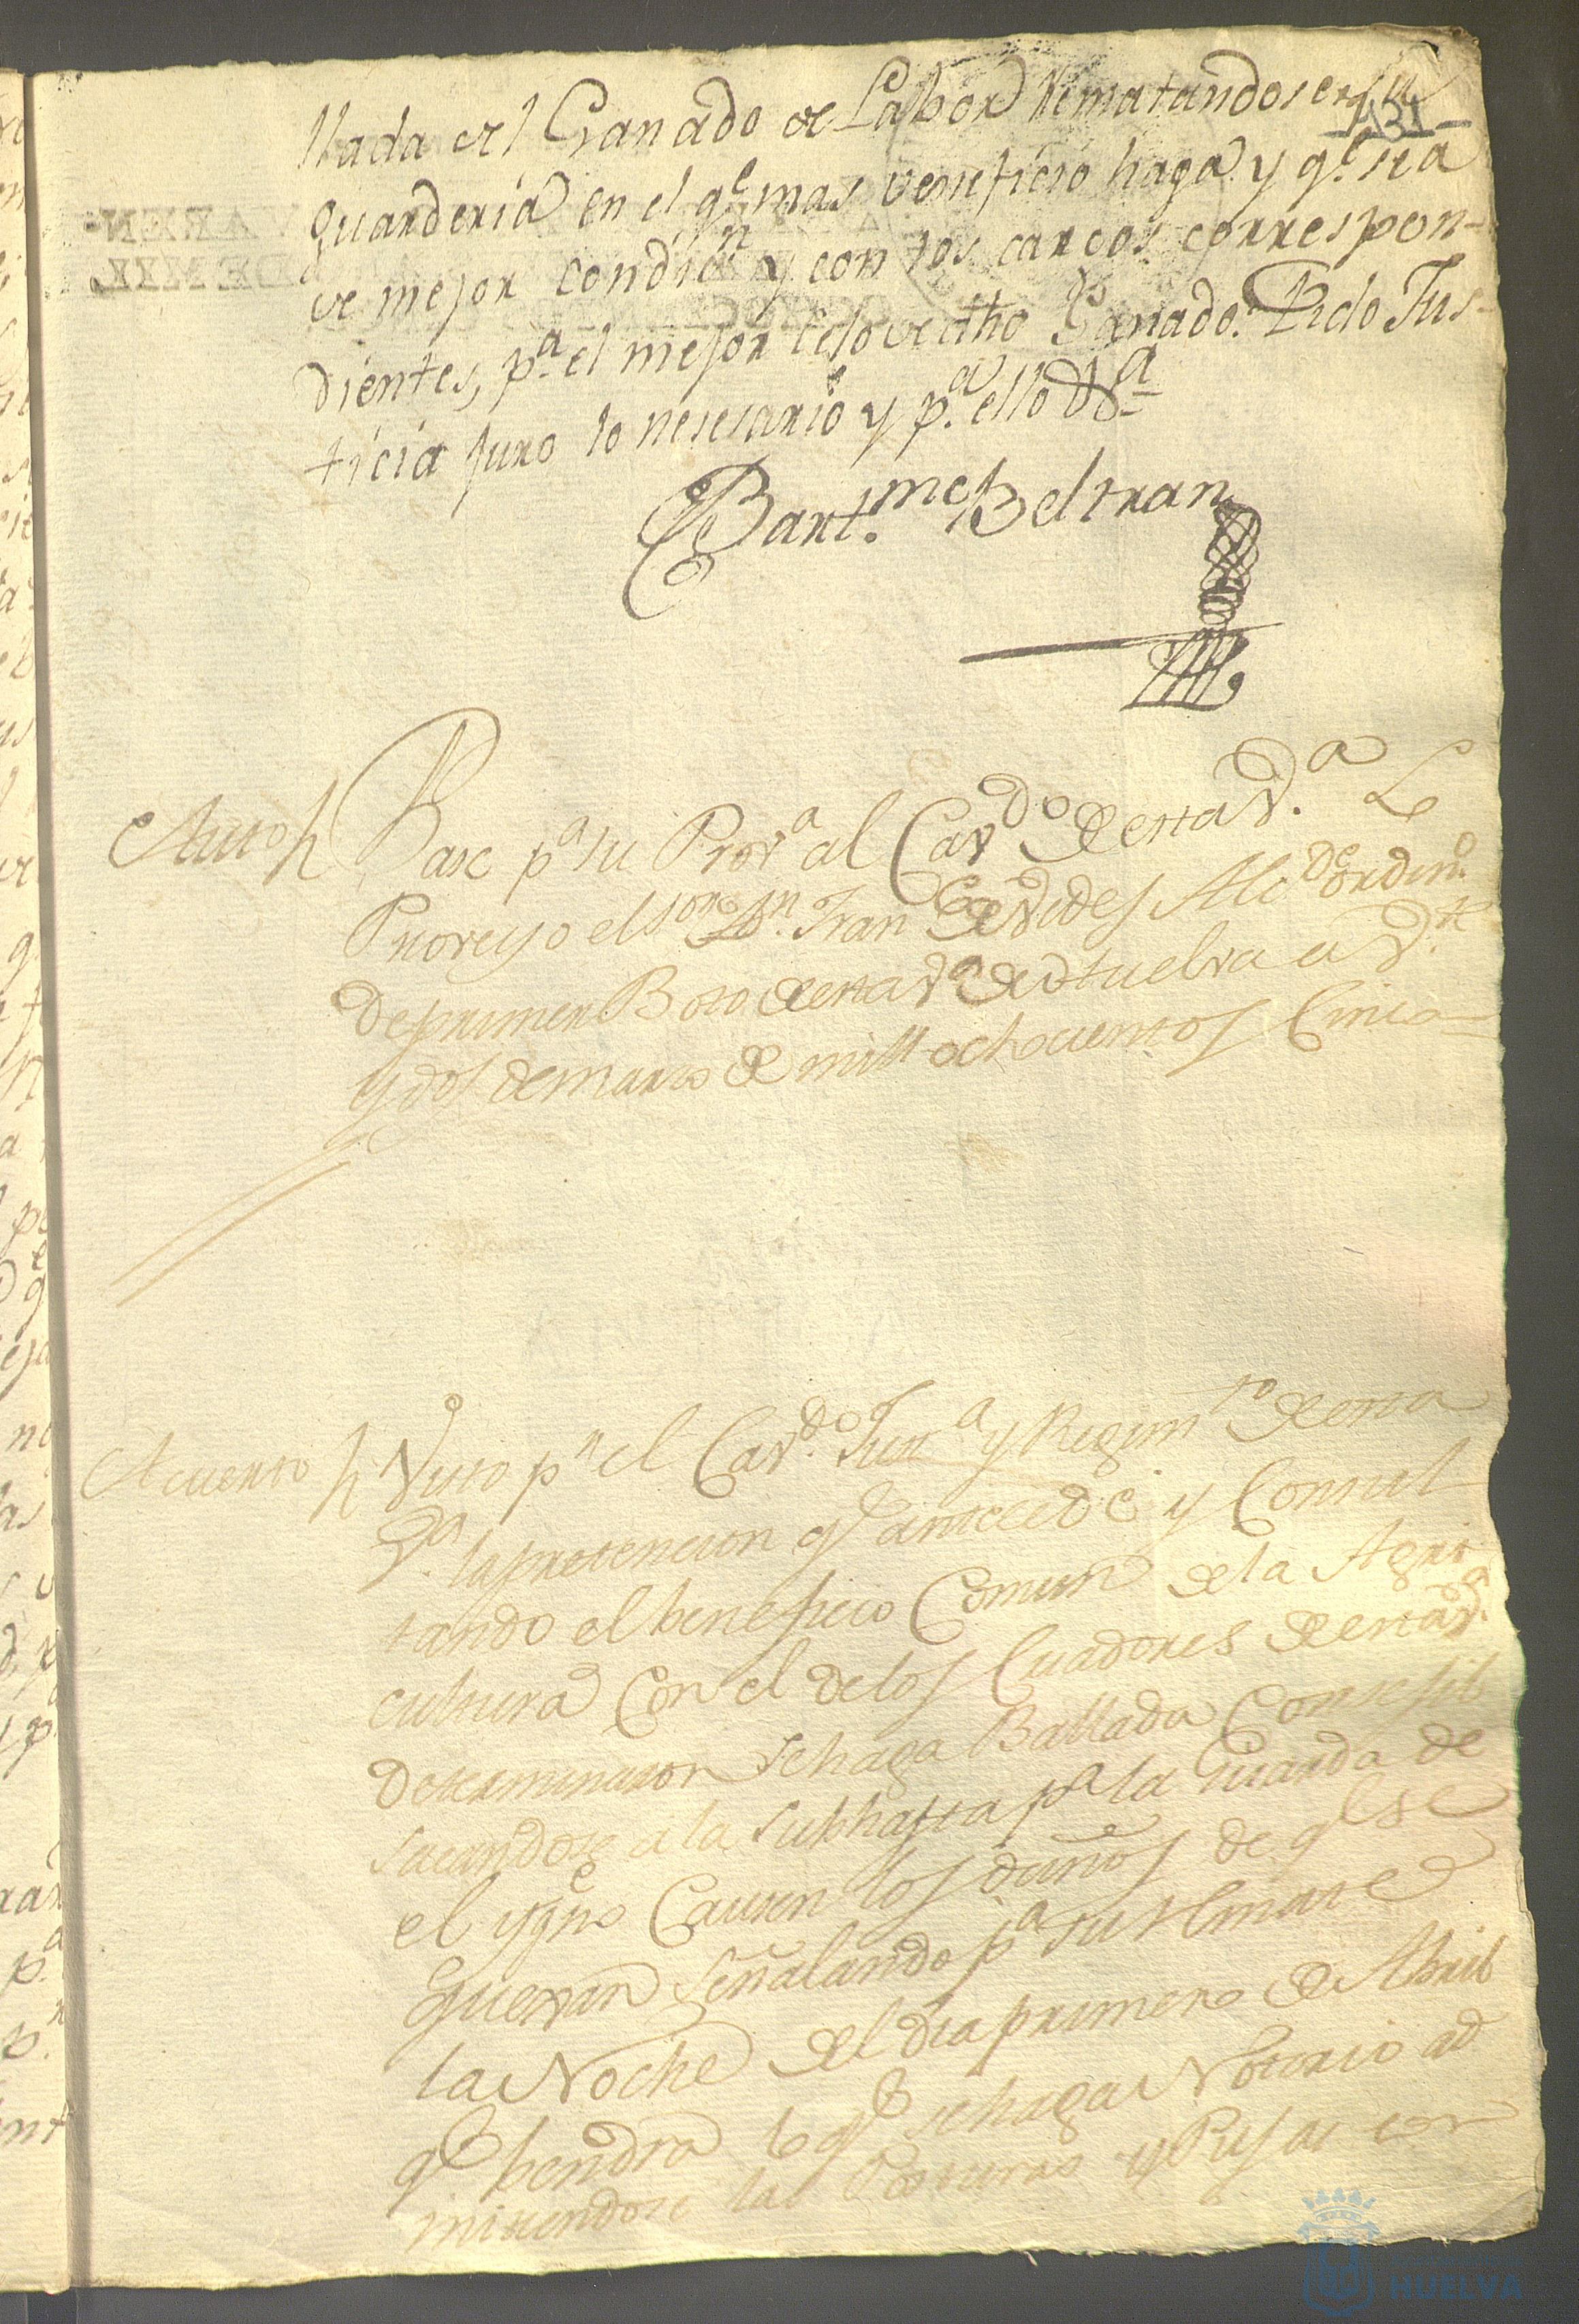 131
llada el Ganado de Labor Rematandose su
Guarderia en el q.e mas veneficio haga y q.e sea
de mejor condic.n y con los cargos correspon-
dientes, p.a el mejor celo de dho Ganado. Pido Jus-
ticia juro lo nesesario y p.a ello V.a
Bart.me Beltran
Auto Pase p.a su Prov.a al Cav.do de esta V.a Lo
Proveyo el s.or D.n Fran Alc.de ordin.o
de primer Boto de esta V.a de Huelva a V.te
y dos de marzo de mill ochocientos Cinco
Acuerdo Visto p.r el Cav.do Just.a y Regim.to de esta
V.a la pretencion q.e antecede y Consul
tando el beneficio Comun de la Agri
cultura con el de los Criadores de esta V.a
Determinaron se haga Ballada Consejil
sacandose a la subhasta p.a la Guarda de
el ygno Causen los daños de q.e se
quexan señalando p.a su Rmate
la Noche del dia primero de Abril
q.e bendra lo q.e se haga Notorio ad
mitiendose las Posturas y Pujas con
HUELVA